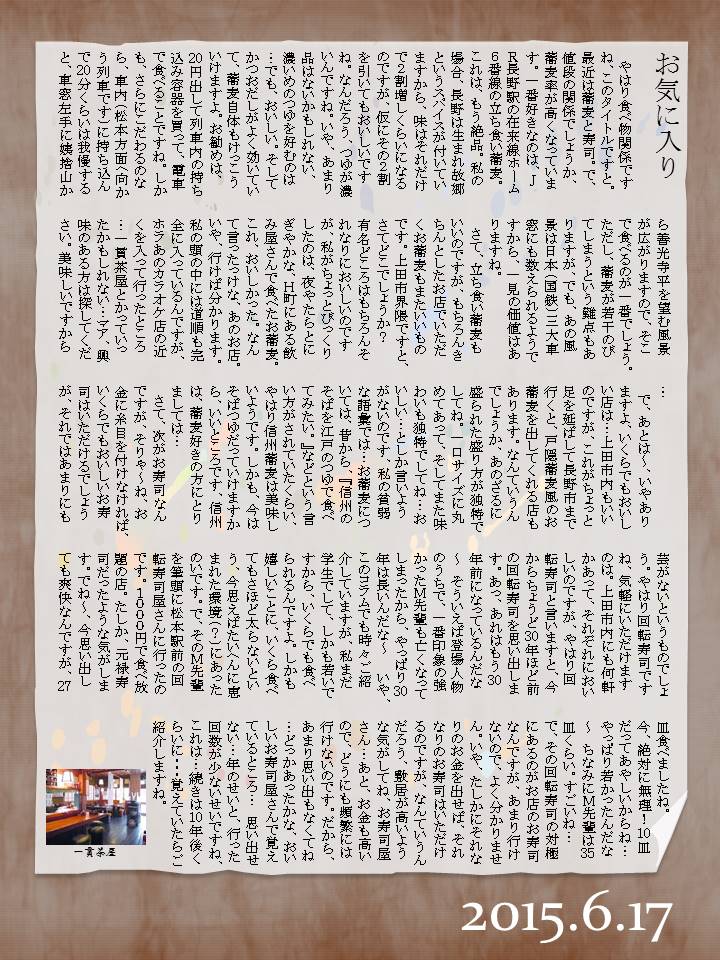 お気に入り
　やはり食べ物関係です
ね、このタイトルですと。
最近は蕎麦と寿司。で、
値段の関係でしょうか、
蕎麦率が高くなっていま
す。一番好きなのは、Ｊ
Ｒ長野駅の在来線ホーム
６番線の立ち食い蕎麦。
これは、もう絶品。私の
場合、長野は生まれ故郷
というスパイスが付いてい
ますから、味はそれだけ
で２割増しくらいになる
のですが、仮にその２割
を引いてもおいしいです
ね。なんだろう、つゆが濃
いんですね。いや、あまり
品はないかもしれない、
濃いめのつゆを好むのは
…でも、おいしい。そして
かつおだしがよく効いてい
て、蕎麦自体もけっこう
いけますよ。お勧めは、
20円出して列車内の持ち
込み容器を買って、電車
で食べることですね。しか
も、さらにこだわるのな
ら、車内（松本方面へ向か
う列車です）に持ち込ん
で20分くらいは我慢する
と、車窓左手に姨捨山か
ら善光寺平を望む風景
が広がりますので、そこ
で食べるのが一番でしょう。
ただし、蕎麦が若干のび
てしまうという難点もあ
りますが、でも、あの風
景は日本（国鉄）三大車
窓にも数えられるようで
すから、一見の価値はあ
りますね。
　さて、立ち食い蕎麦も
いいのですが、もちろんき
ちんとしたお店でいただ
くお蕎麦もまたいいもの
です。上田市界隈ですと、
さてどこでしょうか？
有名どころはもちろんそ
れなりにおいしいのです
が、私がちょっとびっくり
したのは、夜やたらとに
ぎやかな、Ｈ町にある飲
み屋さんで食べたお蕎麦。
これ、おいしかった。なん
て言ったっけな、あのお店。
いや、行けば分かります。
私の頭の中には道順も完
全に入っているんですが、
ホラあのカラオケ店の近
くを入って行ったところ
…一貫茶屋とかっていっ
たかもしれない…マア、興
味のある方は探してくだ
さい。美味しいですから
…
　で、あとは～、いやあり
ますよ、いくらでもおいし
い店は…上田市内もいい
のですが、これがちょっと
足を延ばして長野市まで
行くと、戸隠蕎麦風のお
蕎麦を出してくれる店も
あります。なんていうん
でしょうか、あのざるに
盛られた盛り方が独特で
してね、一口サイズに丸
めてあって、そしてまた味
わいも独特でしてね…お
いしい…としか言いよう
がないのです、私の貧弱
な語彙では…お蕎麦につ
いては、昔から、『信州の
そばを江戸のつゆで食べ
てみたい。』などという言
い方がされていたくらい、
やはり信州蕎麦は美味し
いようです。しかも、今は
そばつゆだっていけますか
ら、いいところです、信州
は、蕎麦好きの方にとり
ましては…
　さて、次がお寿司なん
ですが、そりゃ～ね、お
金に糸目を付けなければ、
いくらでもおいしいお寿
司はいただけるでしょう
が、それではあまりにも
芸がないというものでしょ
う。やはり回転寿司です
ね、気軽にいただけます
のは。上田市内にも何軒
かあって、それぞれにおい
しいのですが、やはり回
転寿司と言いますと、今
からちょうど30年ほど前
の回転寿司を思い出しま
す。あっ、あれはもう30
年前になっているんだな
～ そういえば登場人物
のうちで、一番印象の強
かったM先輩も亡くなって
しまったから、やっぱり30
年は長いんだな～ いや、
このコラムでも時々ご紹
介していますが、私まだ
学生でして、しかも若いで
すから、いくらでも食べ
られるんですよ。しかも
嬉しいことに、いくら食べ
てもさほど太らないとい
う、今思えばたいへんに恵
まれた環境（？）にあった
のです。で、そのM先輩
を筆頭に松本駅前の回
転寿司屋さんに行ったの
です。１０００円で食べ放
題の店。たしか、元禄寿
司だったような気がしま
す。でね～、今思い出し
ても爽快なんですが、27
皿食べましたね。
今、絶対に無理！10皿
だってあやしいからね…
やっぱり若かったんだな
～ ちなみにM先輩は35
皿くらい。すごいね…
で、その回転寿司の対極
にあるのがお店のお寿司
なんですが、あまり行け
ないので、よく分かりませ
ん。いや、たしかにそれな
りのお金を出せば、それ
なりのお寿司はいただけ
るのですが、なんていうん
だろう、敷居が高いよう
な気がしてね、お寿司屋
さん…あと、お金も高い
ので、どうにも頻繁には
行けないのです。だから、
あまり思い出もなくてね
…どっかあったかな、おい
しいお寿司屋さんで覚え
ているところ…　思い出せ
ない…年のせいと、行った
回数が少ないせいですね、
これは…続きは10年後く
らいに・・・覚えていたらご
紹介しますね。
一貫茶屋
2015.6.17